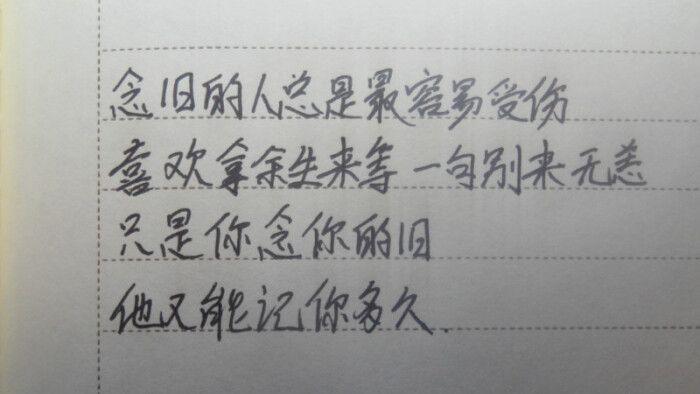 念旧的人总是最容易受伤
喜欢拿余生来等一句别来无恙
只是你念你的旧
他又能记你多久.